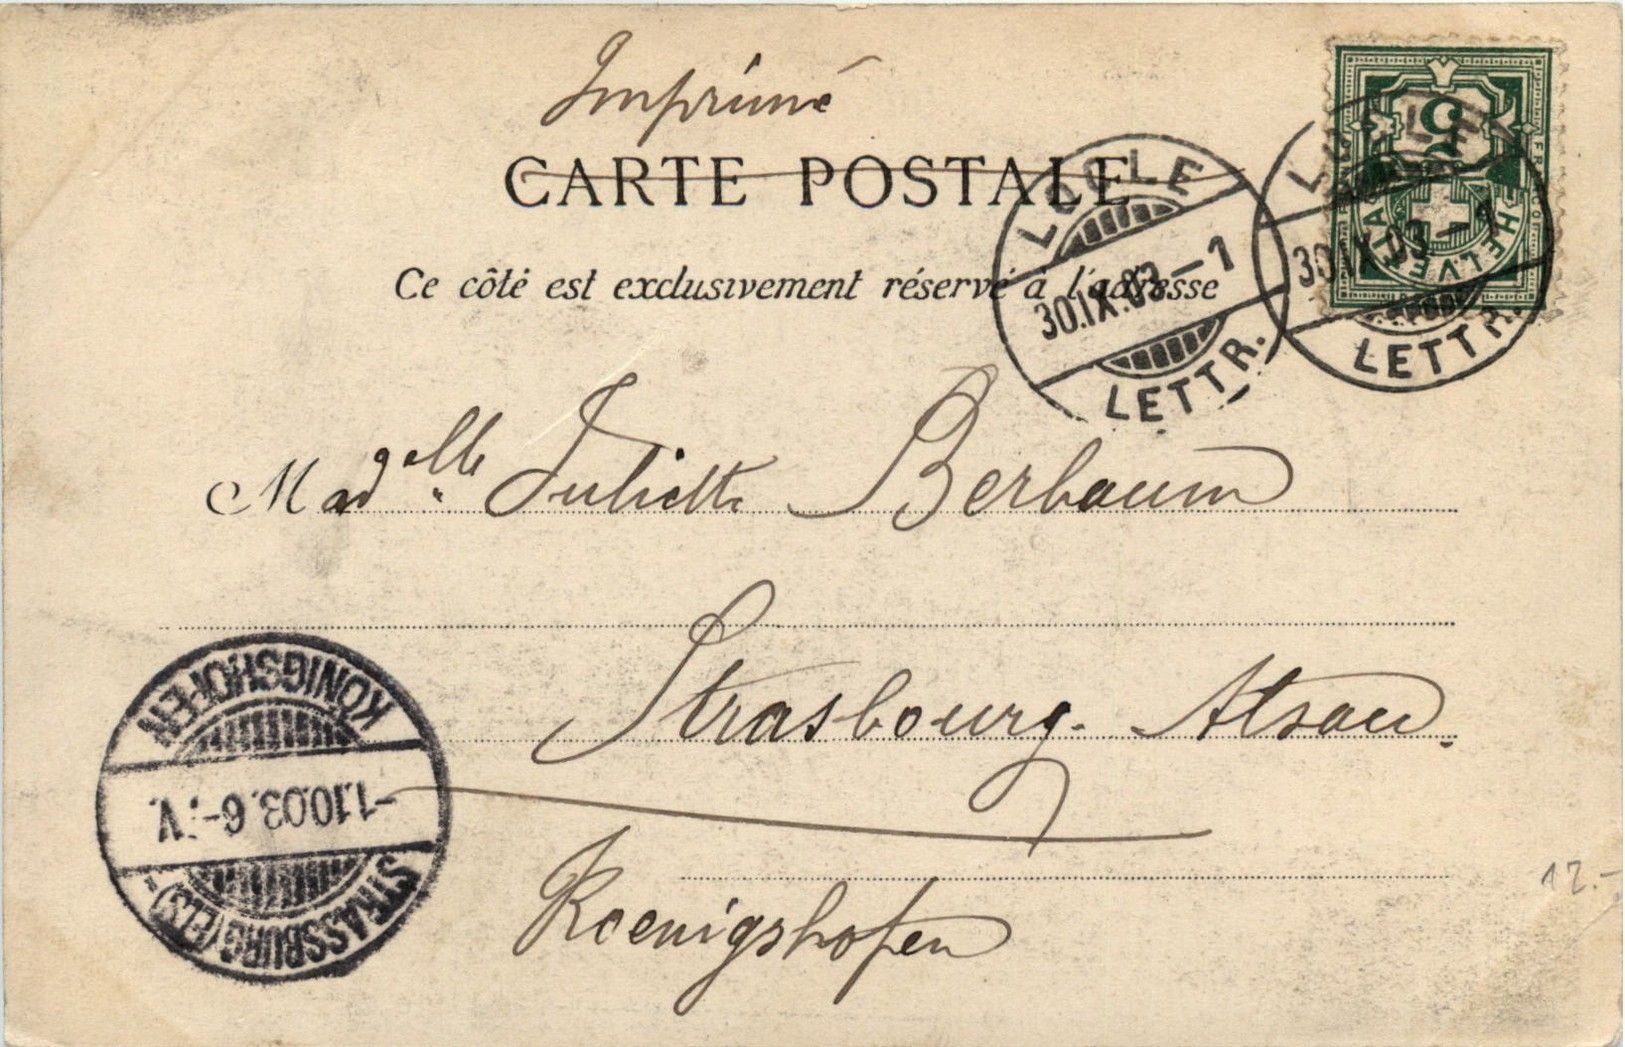 Imprimé
CARTE POSTALE
Ce côté est exclusivement réservé à l'adresse
LOCLE
30.IX.03 - 1
LETTR.
LOCLE
30.IX.03 - 1
LETTR.
5
HELVETIA
FRANCO
Madelle Juliette Berbaum
Strasbourg. Alsace.
Koenigshofen
STRASSBURG (ELS)-
-1.10.03. 6-7V.
KÖNIGSHOFEN
12.-